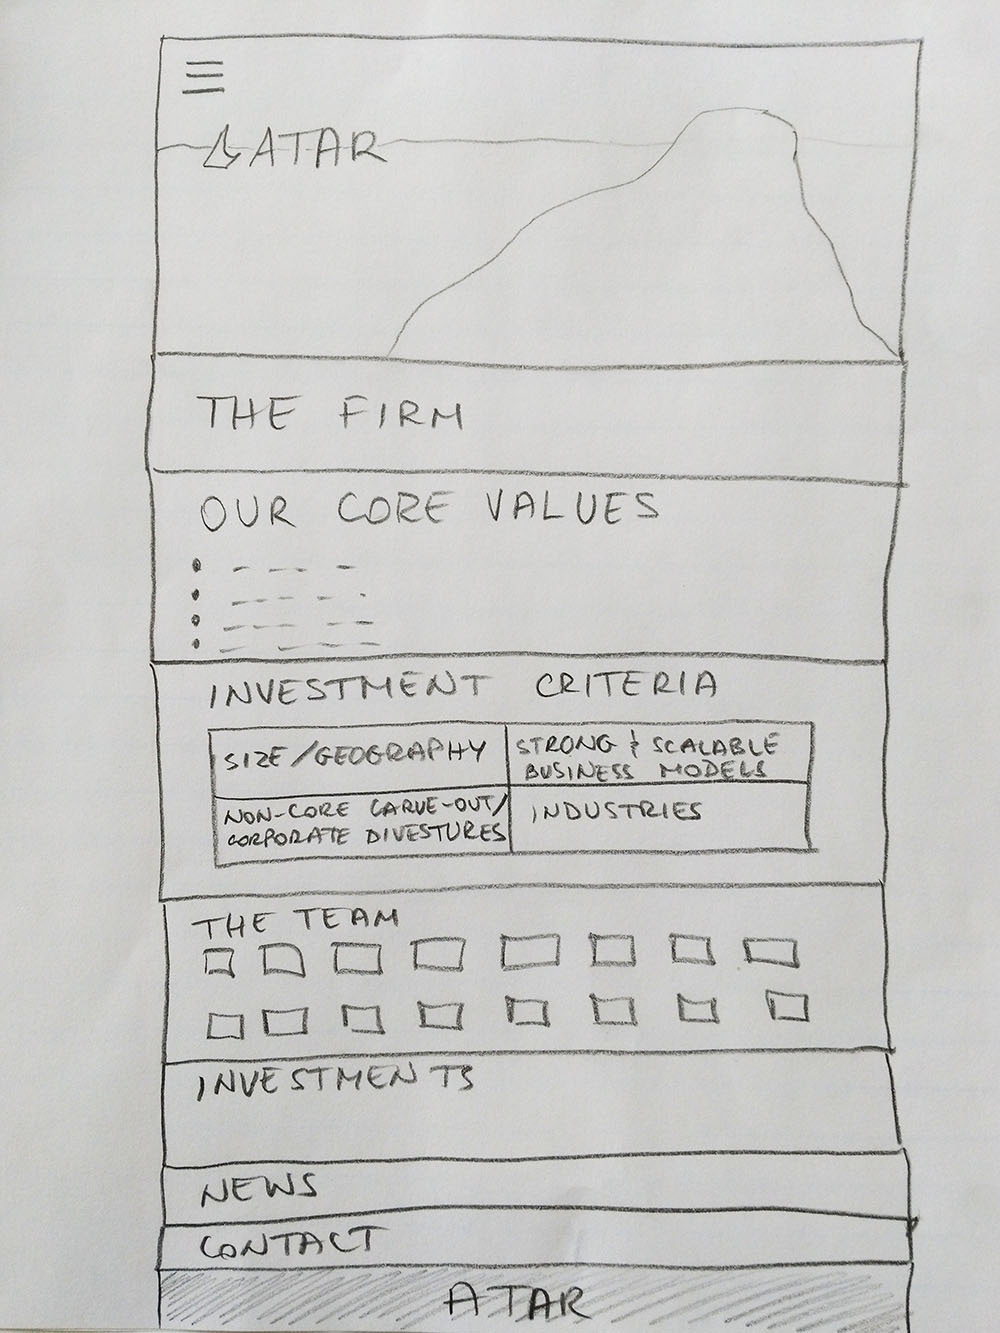 ATAR
THE FIRM
OUR CORE VALUES
INVESTMENT CRITERIA
SIZE/GEOGRAPHY
STRONG & SCALABLE
BUSINESS MODELS
NON-CORE CARVE-OUT/
CORPORATE DIVESTURES
INDUSTRIES
THE TEAM
INVESTMENTS
NEWS
CONTACT
ATAR